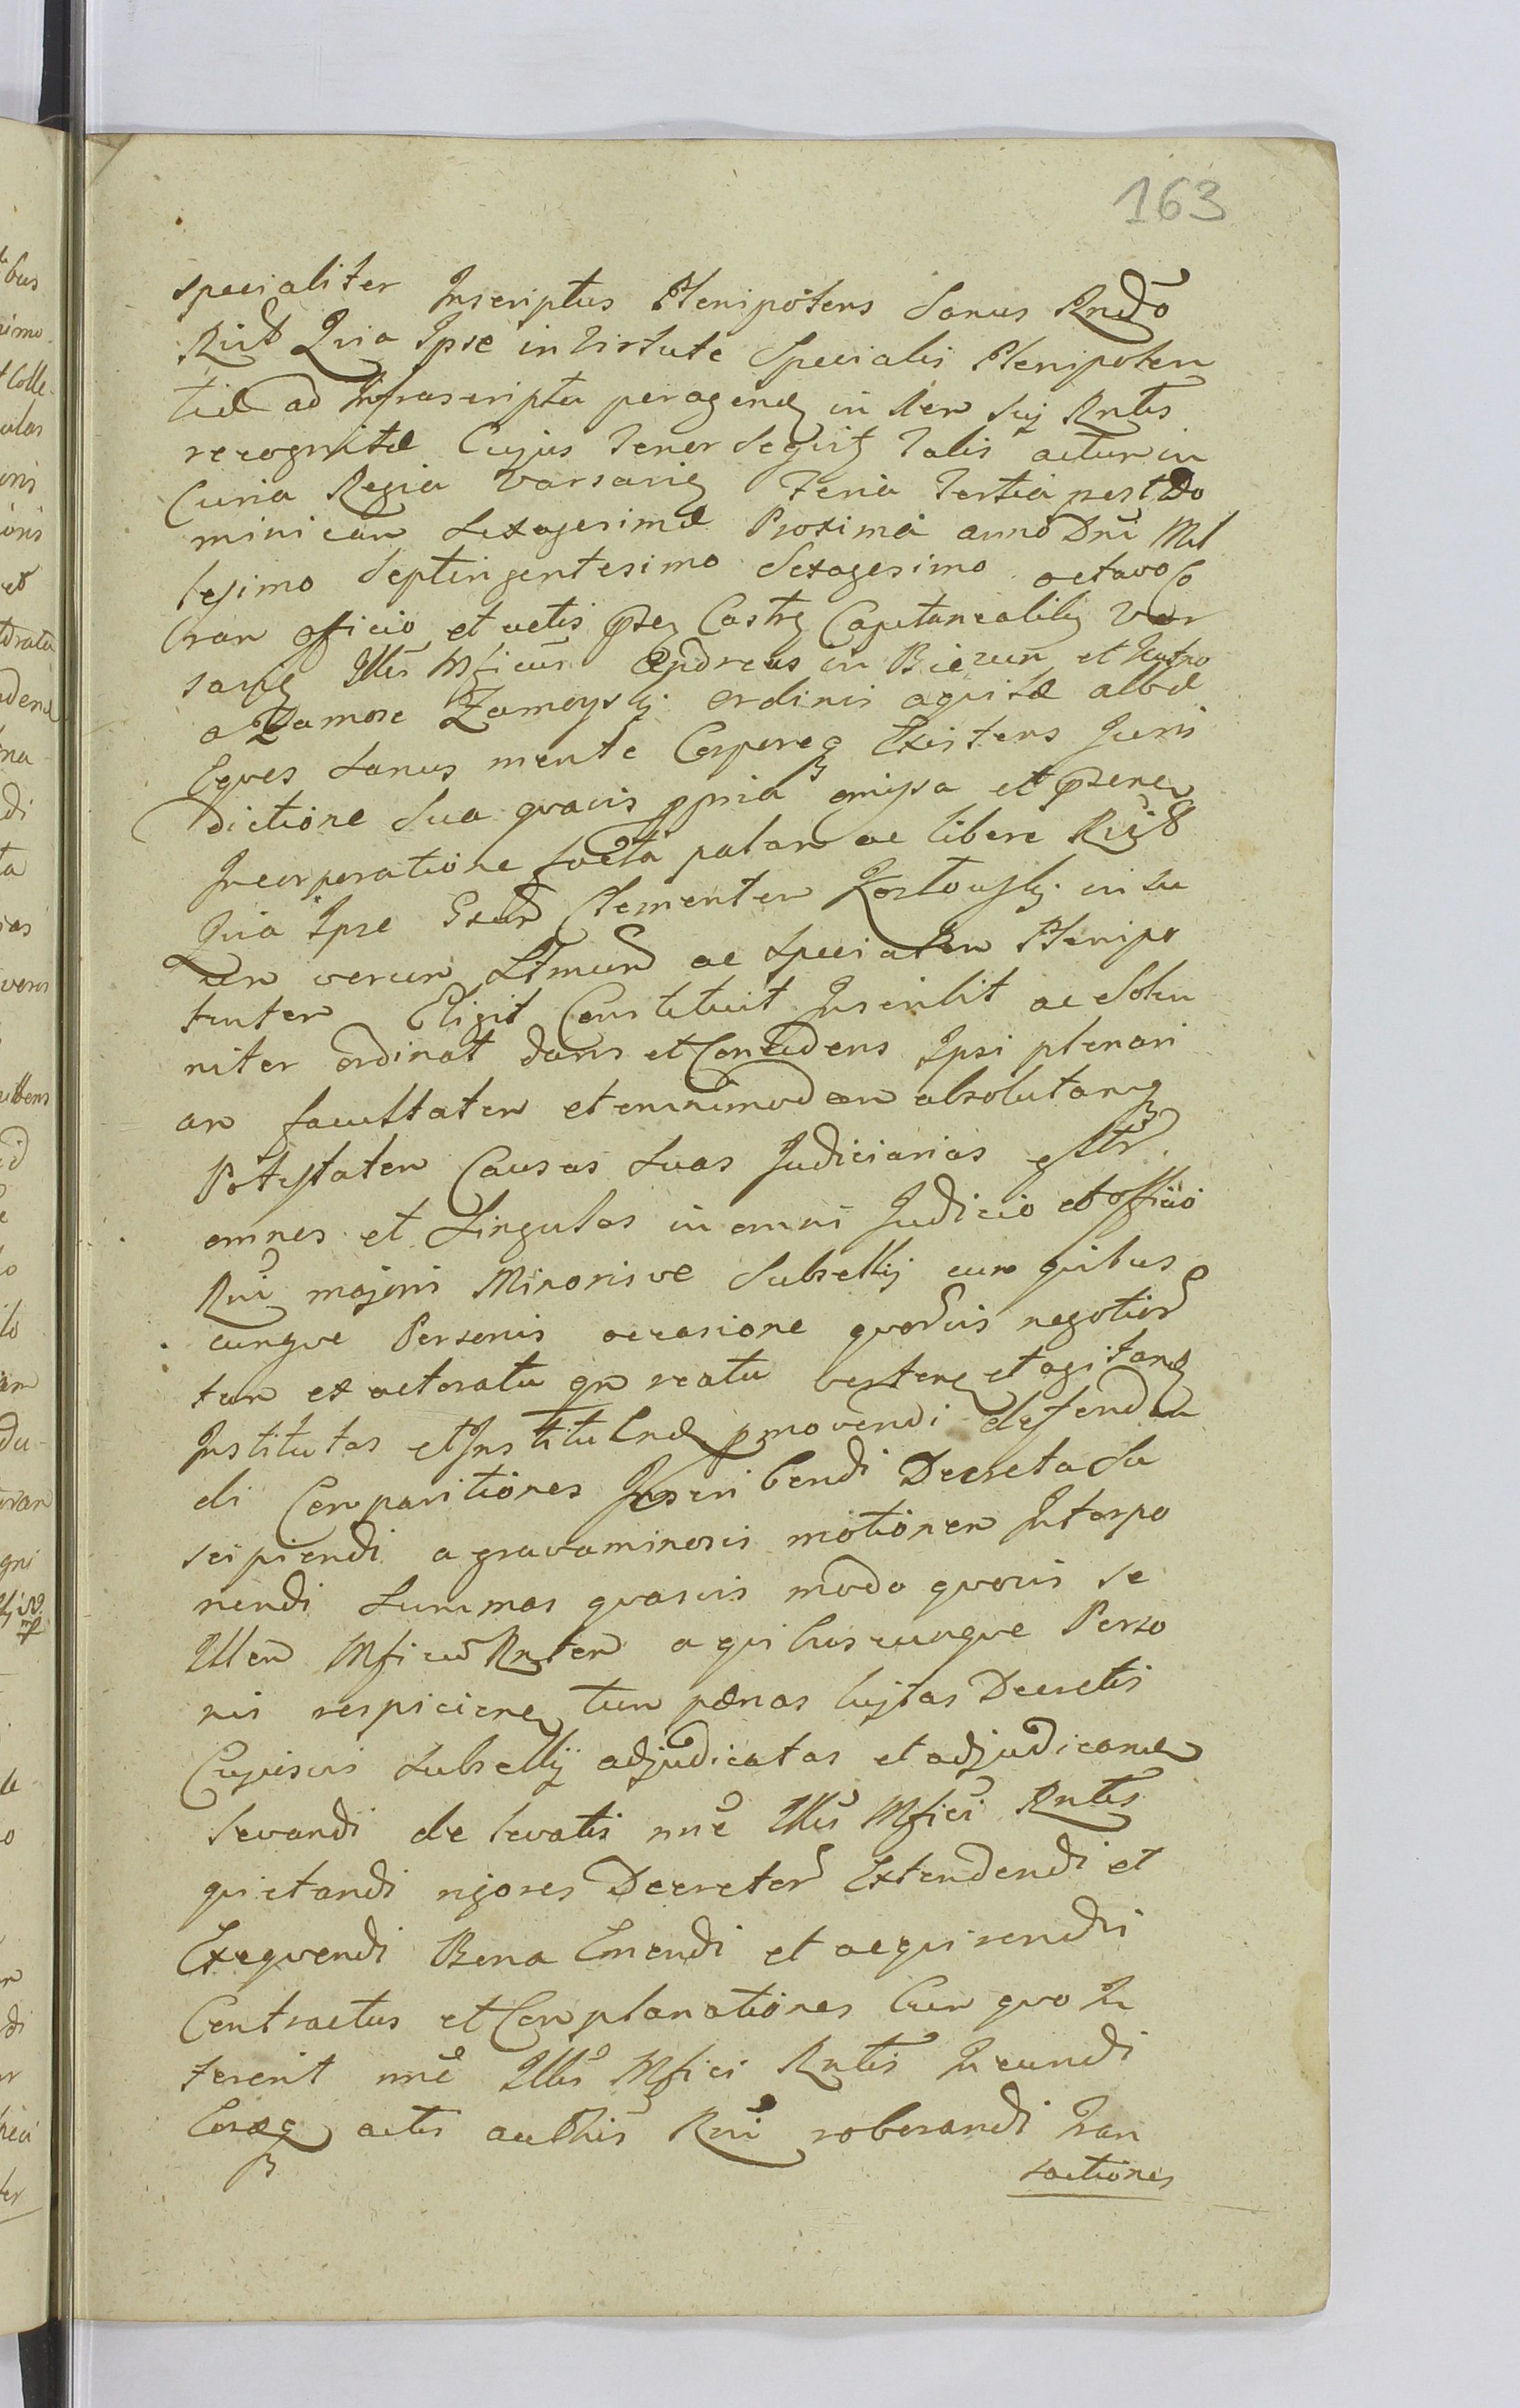 163
specialiter Inscriptus Plenipotens Sanus Rndo
Quia Ipse in Virtute Specialis Plenipoten
tiæ ad Infrascripta peragend in rem sui Rntis
recognitæ Cujus Tenor Sequitq Talis actum in
Curia Regia Varsavię Feria Tertia post Do
minicam Sexagesimæ Proxima anno Dni Mil
lesimo Septingentesimo Sexagesimo octavo Co
ram officio et actis Castr Capitanealibq Var
savię Illris Mficus Andreas in Biezun et
a Zamosc Zamoyski ordinis aquilæ albæ
Eques Sanus mente Corporeq Existens Juris
dictione Sua quavis ppria omissa et
Incorporatione facta palam ac libere
Quia Ipse Clementem Kozłowski in su
um verum Ltmum ac Specialem Plenipo
tentem Eligit Constituit Inscribit ac Solen
niter ordinat dans et Concedens Ipsi plenari
am facultatem et omnimodam absolutamq
Potestatem Causas Suas Judiciarias
omnes et Singulas in omni Judicio et officio
Rni majoris Minorisve Subsellij cum quibus
cunque Personis occasione quorvis negotior
tam ex actoratu qm reatu vertend et agitand
Institutas et Instituend pmovendi defenden
di Comparitiones Inscribendi Decreta Su
scipiendi a gravaminosis motionem Interpo
nendi Summas quasvis modo quovis se
Illem Mficum Rntem a quibuscunque Perso
nis respicien tum pænas luitas Decretis
Cujusvis Subsellij adjudicatas et adjudicand
levandi de levatis nne Illis Mfici Rntis
quietandi rigores Decretor Extendendi et
Exequendi Bona Emendi et acquirendi
Contractus et Complanationes Cum quo In
tererit nne Illis Mfici Rntis Ineundi
Eosq actis authis Rni roborandi Tran
sactiones